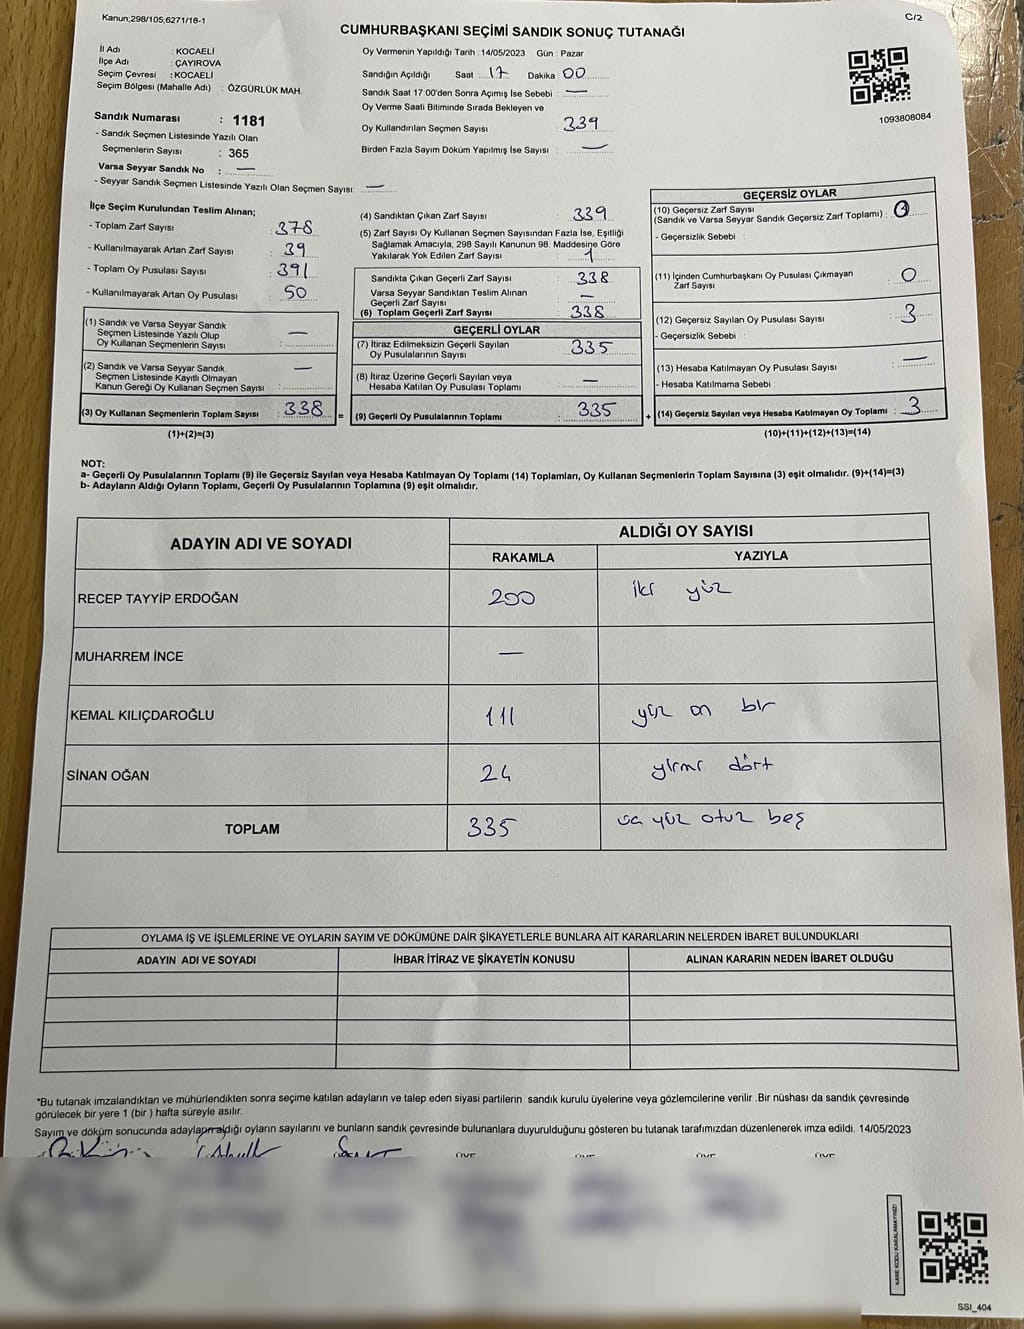 Kanun;298/105;6271/18-1
C/2
CUMHURBAŞKANI SEÇİMİ SANDIK SONUÇ TUTANAĞI
İl Adı : KOCAELİ
İlçe Adı : ÇAYIROVA
Seçim Çevresi : KOCAELİ
Seçim Bölgesi (Mahalle Adı) : ÖZGÜRLÜK MAH.
Oy Vermenin Yapıldığı Tarih : 14/05/2023 Gün : Pazar
Sandığın Açıldığı Saat : 17 Dakika : 00
Sandık Saat 17:00'den Sonra Açımış İse Sebebi : —
Oy Verme Saati Bitiminde Sırada Bekleyen ve
Oy Kullandırılan Seçmen Sayısı : 339
Birden Fazla Sayım Döküm Yapılmış İse Sayısı : —
1093808084
Sandık Numarası : 1181
- Sandık Seçmen Listesinde Yazılı Olan
Seçmenlerin Sayısı : 365
Varsa Seyyar Sandık No : —
- Seyyar Sandık Seçmen Listesinde Yazılı Olan Seçmen Sayısı: —
İlçe Seçim Kurulundan Teslim Alınan;
- Toplam Zarf Sayısı : 378
- Kullanılmayarak Artan Zarf Sayısı : 39
- Toplam Oy Pusulası Sayısı : 391
- Kullanılmayarak Artan Oy Pusulası : 50
(1) Sandık ve Varsa Seyyar Sandık
Seçmen Listesinde Yazılı Olup
Oy Kullanan Seçmenlerin Sayısı : —
(2) Sandık ve Varsa Seyyar Sandık
Seçmen Listesinde Kayıtlı Olmayan
Kanun Gereği Oy Kullanan Seçmen Sayısı : —
(3) Oy Kullanan Seçmenlerin Toplam Sayısı : 338 =
(1)+(2)=(3)
(4) Sandıktan Çıkan Zarf Sayısı : 339
(5) Zarf Sayısı Oy Kullanan Seçmen Sayısından Fazla İse, Eşitliği
Sağlamak Amacıyla, 298 Sayılı Kanunun 98. Maddesine Göre
Yakılarak Yok Edilen Zarf Sayısı : 1
Sandıkta Çıkan Geçerli Zarf Sayısı : 338
Varsa Seyyar Sandıktan Teslim Alınan
Geçerli Zarf Sayısı : —
(6) Toplam Geçerli Zarf Sayısı : 338
GEÇERLİ OYLAR
(7) İtiraz Edilmeksizin Geçerli Sayılan
Oy Pusulalarının Sayısı : 335
(8) İtiraz Üzerine Geçerli Sayılan veya
Hesaba Katılan Oy Pusulası Toplamı : —
(9) Geçerli Oy Pusulalarının Toplamı : 335 +
GEÇERSİZ OYLAR
(10) Geçersiz Zarf Sayısı
(Sandık ve Varsa Seyyar Sandık Geçersiz Zarf Toplamı) :
- Geçersizlik Sebebi :
(11) İçinden Cumhurbaşkanı Oy Pusulası Çıkmayan
Zarf Sayısı : 0
(12) Geçersiz Sayılan Oy Pusulası Sayısı : 3
- Geçersizlik Sebebi :
(13) Hesaba Katılmayan Oy Pusulası Sayısı : —
- Hesaba Katılmama Sebebi :
(14) Geçersiz Sayılan veya Hesaba Katılmayan Oy Toplamı : 3
(10)+(11)+(12)+(13)=(14)
NOT:
a- Geçerli Oy Pusulalarının Toplamı (9) ile Geçersiz Sayılan veya Hesaba Katılmayan Oy Toplamı (14) Toplamları, Oy Kullanan Seçmenlerin Toplam Sayısına (3) eşit olmalıdır. (9)+(14)=(3)
b- Adayların Aldığı Oyların Toplamı, Geçerli Oy Pusulalarının Toplamına (9) eşit olmalıdır.
ADAYIN ADI VE SOYADI
ALDIĞI OY SAYISI
RAKAMLA YAZIYLA
RECEP TAYYİP ERDOĞAN 200 iki yüz
MUHARREM İNCE —
KEMAL KILIÇDAROĞLU 111 yüz on bir
SİNAN OĞAN 24 yirmi dört
TOPLAM 335 üç yüz otuz beş
OYLAMA İŞ VE İŞLEMLERİNE VE OYLARIN SAYIM VE DÖKÜMÜNE DAİR ŞİKAYETLERLE BUNLARA AİT KARARLARIN NELERDEN İBARET BULUNDUKLARI
ADAYIN ADI VE SOYADI İHBAR İTİRAZ VE ŞİKAYETİN KONUSU ALINAN KARARIN NEDEN İBARET OLDUĞU
*Bu tutanak imzalandıktan ve mühürlendikten sonra seçime katılan adayların ve talep eden siyasi partilerin sandık kurulu üyelerine veya gözlemcilerine verilir .Bir nüshası da sandık çevresinde
görülecek bir yere 1 (bir ) hafta süreyle asılır.
Sayım ve döküm sonucunda adayların aldığı oyların sayılarını ve bunların sandık çevresinde bulunanlara duyurulduğunu gösteren bu tutanak tarafımızdan düzenlenerek imza edildi. 14/05/2023
ÜYE ÜYE ÜYE ÜYE
KARE KODU KARALAMAYINIZ!
SSI_404